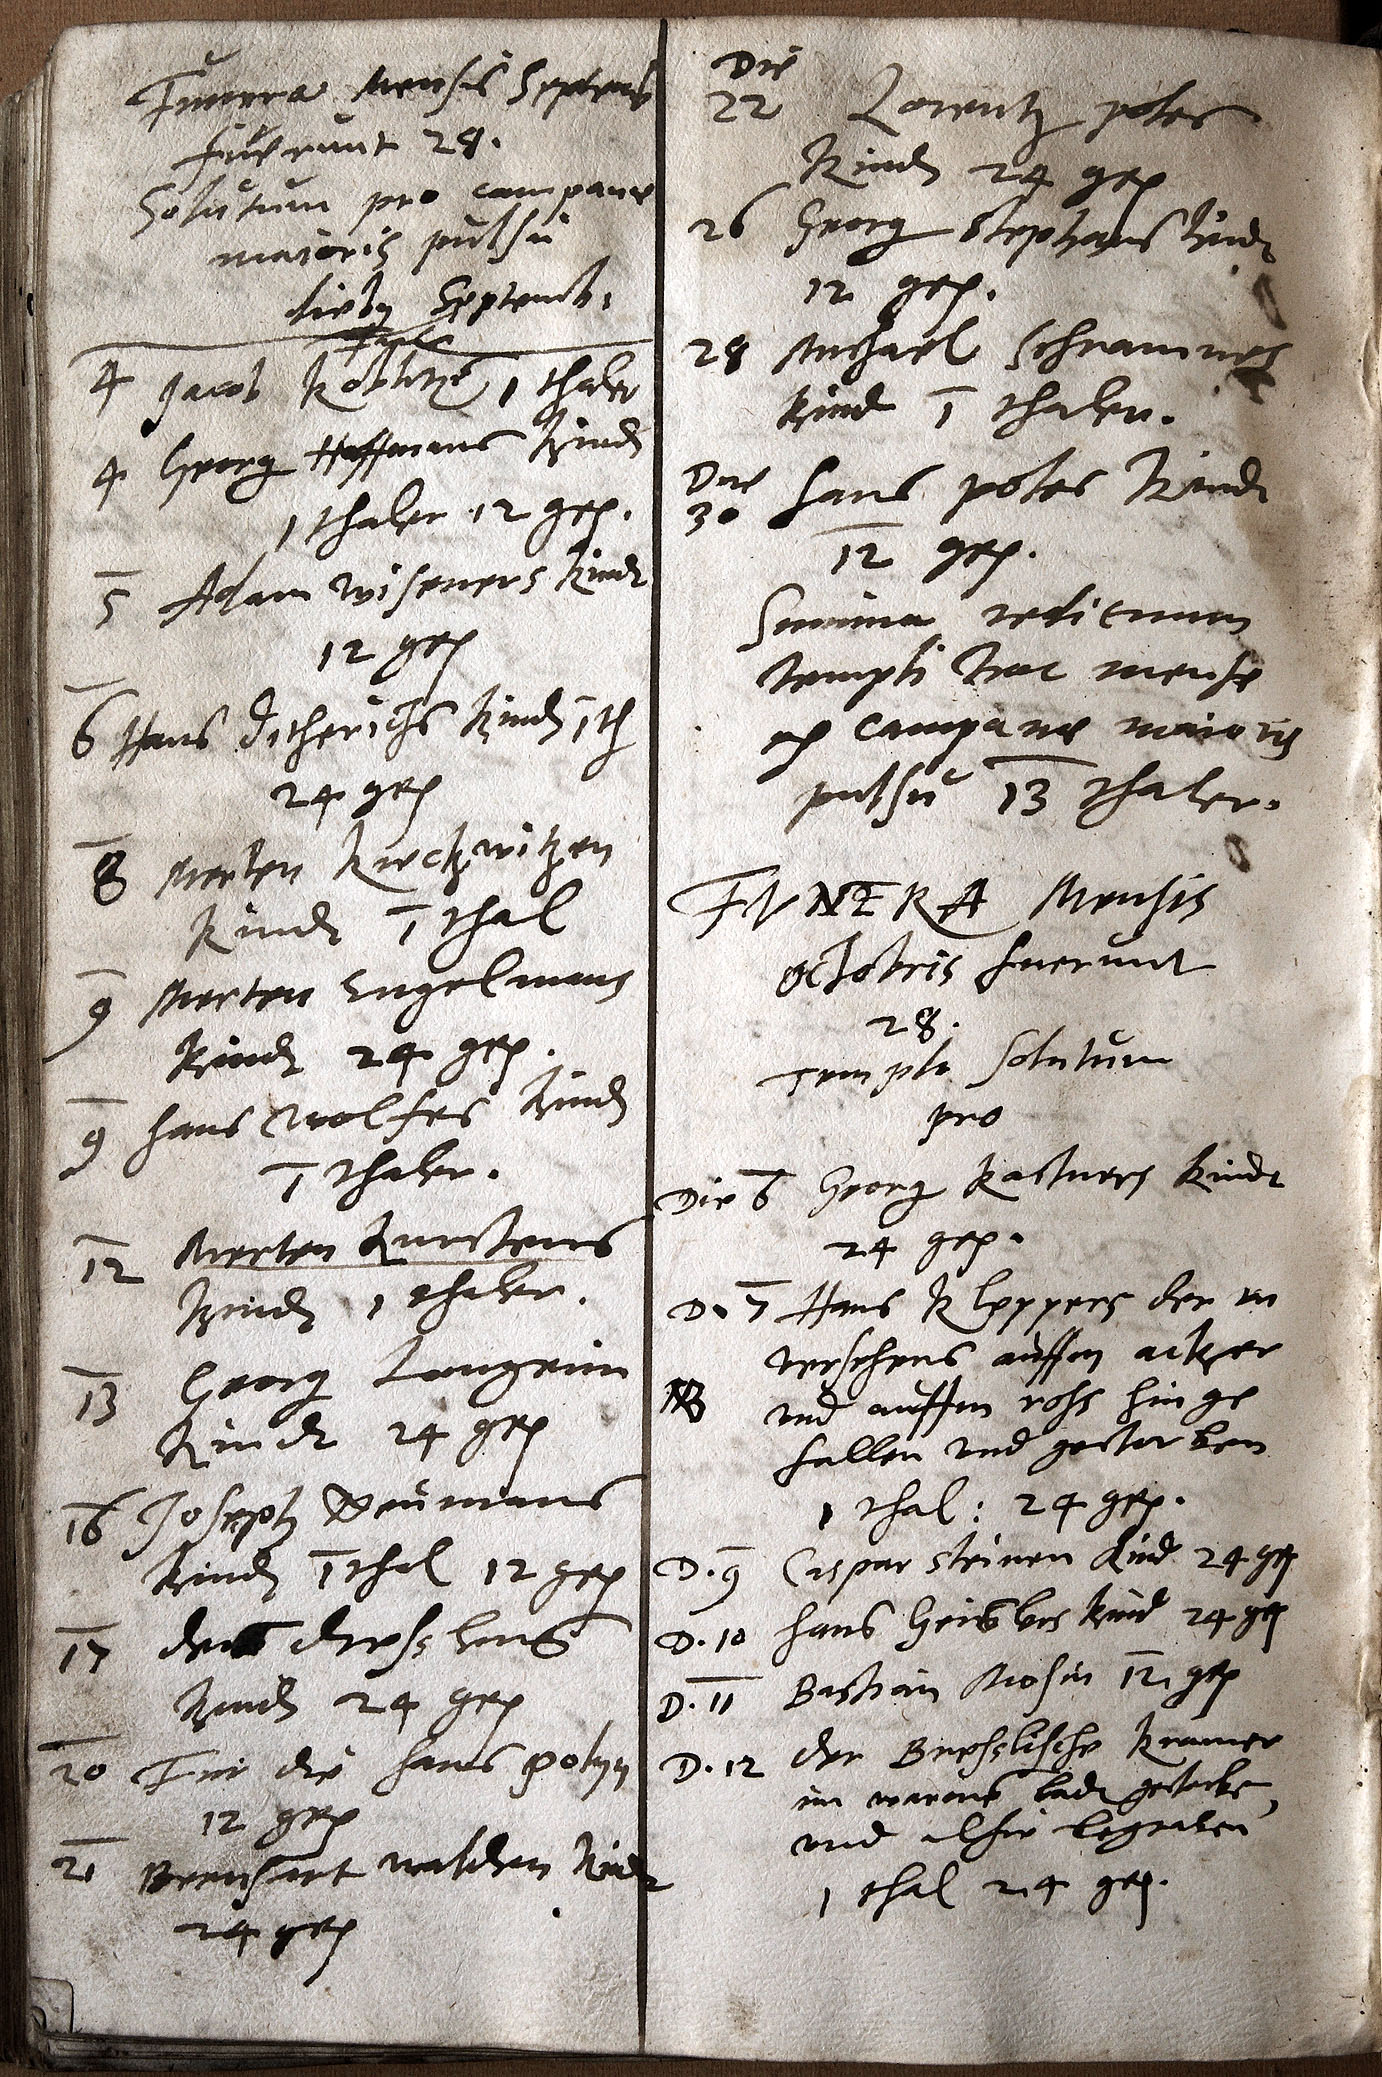 Funera Mensis Septemb
fuerunt 28.
Solutum pro campanae
maioris pulsu
diebus Septemb.
4 Jacob 1 thaler
4 Georg Hoffmans Kindt
1 thaler 12 gr.
5 Adam Wiseners Kindt
12 gr
6 Hans Ditherichs Kindt 1 th
24 gr
8 Merten Kreckwitzen
Kindt 1 thal
9 Merten Engelmans
Kindt 24 gr.
9 Hans Wolfes Kindt
1 thaler.
12 Merten Kurstens
Kindt 1 thaler.
13 Georg
Kindt 24 gr
16 Joseph Neumans
Kindt 1 thal 12 gr
17
Kindt 24 gr
20 Für die Hans
12 gr
21 Bernhart Kindt
24 gr
Die
22 Lorentz poles
Kindt 24 gr
26 Georg Stephans Kindt
12 gr.
28 Michael Schrammes
Kind 1 thaler.
Die
30 Hans poles Kindt
12 gr.
Summa redituum
templi hoc mense
ex campanae maioris
pulsu 13 thaler.
FVNERA Mensis
octobris fuerunt
28.
Templo Solutum
pro
Die 6 Georg Kastners Kindt
24 gr.
D. 7 Hans Kleppers der un
versehens auffm acker
NB und auffm ross hin ge
fallen und gestorben
1 thal: 24 gr.
D. 9 Caspar Steinen Kind 24 gr
D. 10 Hans Kind 24 gr
D. 11 Bastian 12 gr
D. 12 der Bresslische Kramer
im warmē bade gestorbē
und alhie begraben
1 thal 24 gr.